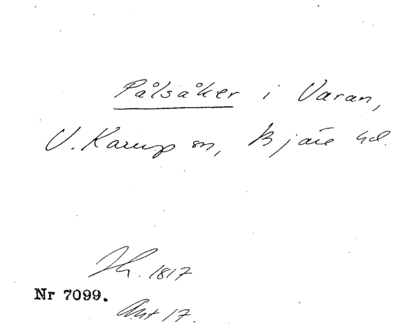 Pålsåker i Varan,
V. Karup sn, Bjäre hd.
Jh. 1817
Nr 7099.
Ant 17.